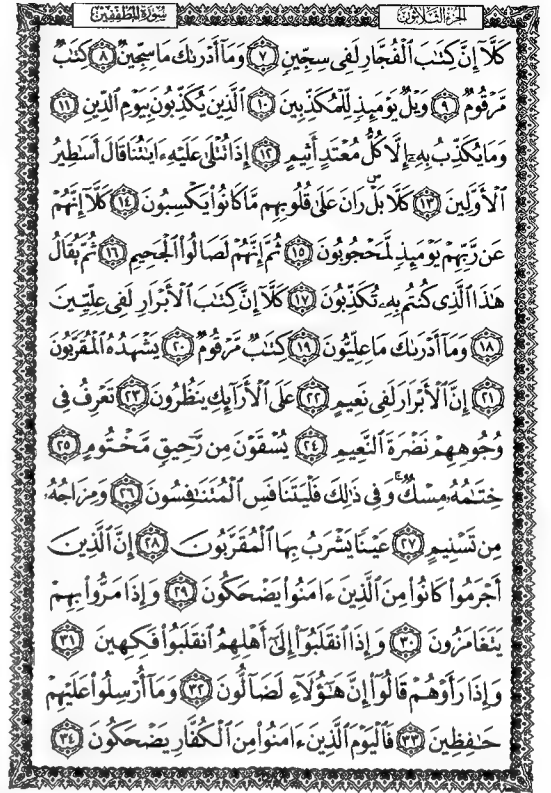 سُورَةُ المُطَفِّفِين
الجزء الثَّلَاثُون
كَلَّآ إِنَّ كِتَٰبَ ٱلْفُجَّارِ لَفِى سِجِّينٍ ٧ وَمَآ أَدْرَىٰكَ مَا سِجِّينٌ ٨ كِتَٰبٌ
مَّرْقُومٌ ٩ وَيْلٌ يَوْمَئِذٍ لِّلْمُكَذِّبِينَ ١٠ ٱلَّذِينَ يُكَذِّبُونَ بِيَوْمِ ٱلدِّينِ ١١
وَمَا يُكَذِّبُ بِهِۦٓ إِلَّا كُلُّ مُعْتَدٍ أَثِيمٍ ١٢ إِذَا تُتْلَىٰ عَلَيْهِ ءَايَٰتُنَا قَالَ أَسَٰطِيرُ
ٱلْأَوَّلِينَ ١٣ كَلَّا بَلْ ۜ رَانَ عَلَىٰ قُلُوبِهِم مَّا كَانُوا۟ يَكْسِبُونَ ١٤ كَلَّآ إِنَّهُمْ
عَن رَّبِّهِمْ يَوْمَئِذٍ لَّمَحْجُوبُونَ ١٥ ثُمَّ إِنَّهُمْ لَصَالُوا۟ ٱلْجَحِيمِ ١٦ ثُمَّ يُقَالُ
هَٰذَا ٱلَّذِى كُنتُم بِهِۦ تُكَذِّبُونَ ١٧ كَلَّآ إِنَّ كِتَٰبَ ٱلْأَبْرَارِ لَفِى عِلِّيِّينَ
١٨ وَمَآ أَدْرَىٰكَ مَا عِلِّيُّونَ ١٩ كِتَٰبٌ مَّرْقُومٌ ٢٠ يَشْهَدُهُ ٱلْمُقَرَّبُونَ
٢١ إِنَّ ٱلْأَبْرَارَ لَفِى نَعِيمٍ ٢٢ عَلَى ٱلْأَرَآئِكِ يَنظُرُونَ ٢٣ تَعْرِفُ فِى
وُجُوهِهِمْ نَضْرَةَ ٱلنَّعِيمِ ٢٤ يُسْقَوْنَ مِن رَّحِيقٍ مَّخْتُومٍ ٢٥
خِتَٰمُهُۥ مِسْكٌ ۚ وَفِى ذَٰلِكَ فَلْيَتَنَافَسِ ٱلْمُتَنَٰفِسُونَ ٢٦ وَمِزَاجُهُۥ
مِن تَسْنِيمٍ ٢٧ عَيْنًا يَشْرَبُ بِهَا ٱلْمُقَرَّبُونَ ٢٨ إِنَّ ٱلَّذِينَ
أَجْرَمُوا۟ كَانُوا۟ مِنَ ٱلَّذِينَ ءَامَنُوا۟ يَضْحَكُونَ ٢٩ وَإِذَا مَرُّوا۟ بِهِمْ
يَتَغَامَزُونَ ٣٠ وَإِذَا ٱنقَلَبُوٓا۟ إِلَىٰٓ أَهْلِهِمُ ٱنقَلَبُوا۟ فَكِهِينَ ٣١
وَإِذَا رَأَوْهُمْ قَالُوٓا۟ إِنَّ هَٰٓؤُلَآءِ لَضَآلُّونَ ٣٢ وَمَآ أُرْسِلُوا۟ عَلَيْهِمْ
حَٰفِظِينَ ٣٣ فَٱلْيَوْمَ ٱلَّذِينَ ءَامَنُوا۟ مِنَ ٱلْكُفَّارِ يَضْحَكُونَ ٣٤